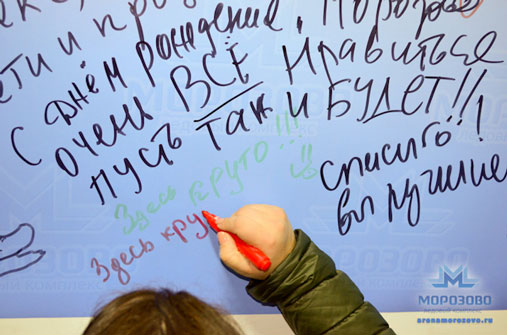 ети и
С Днём рождения, Морозово
очень ВСЁ нравиться
пусть так и БУДЕТ!!!
Спасибо!!
вы лучшие
Здесь круто!!!
Здесь кру
МОРОЗОВО
МОРОЗОВО
ЛЕДОВЫЙ КОМПЛЕКС
arenamorozovo.ru